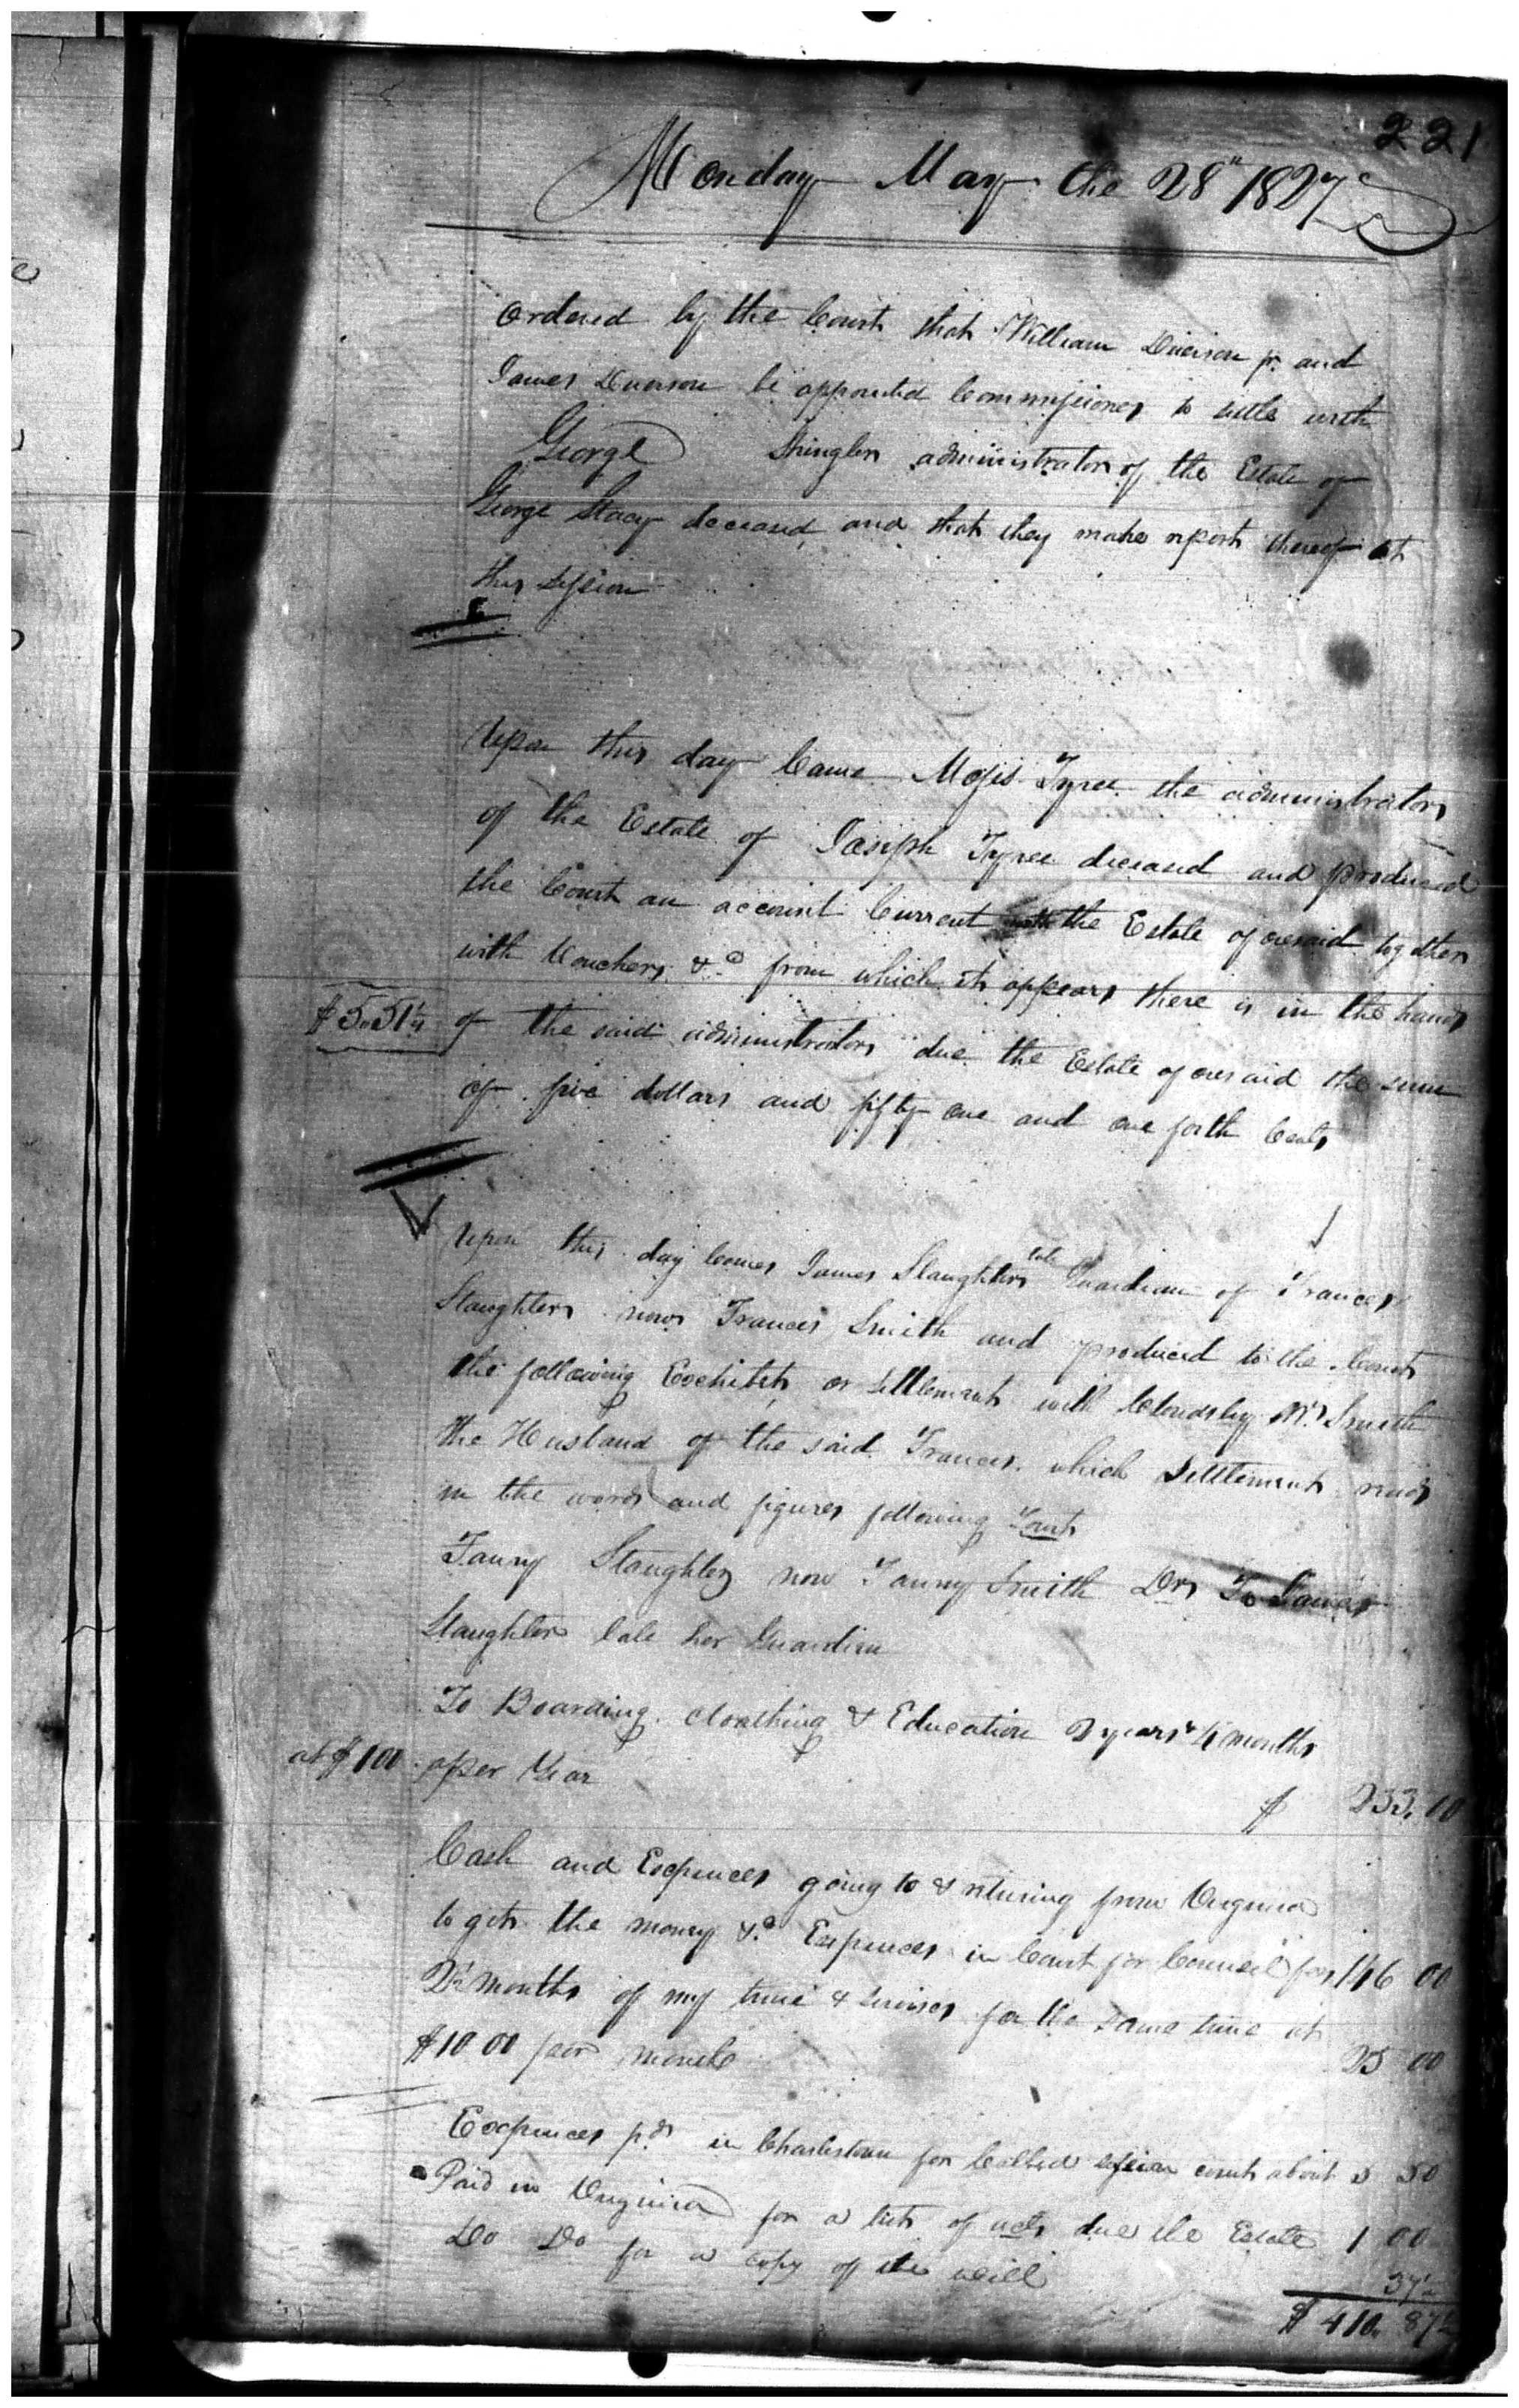 221
Monday May the 28" 1827
Ordered by the Court that William Duerson jr. and
James Duerson be appointed Commissioners to settle with
George Shingler administrator of the Estate of
George Stacy deceased, and that they make report thereof at
this Session
Upon this day Came Moses Tyree the administrator
of the Estate of Joseph Tyree deceased and produced
the Court an account Current with the Estate aforesaid together
with Vouchers &c from which it appears there is in the hands
$5.51¼ of the said administrator due the Estate aforesaid the sum
of five dollars and fifty one and one forth Cents
Upon this day Comes James Slaughter late Guardian of Frances
Slaughter now Frances Smith and produced to the Court
the following Exchibit or Settlement with M. Smith
the Husband of the said Frances which Settlement reads
in the words and figures following Towit
Fanny Slaughter now Fanny Smith Dr To James
Slaughter late her Guardian
To Boarding Cloathing & Education 2 years & 4 months
at $100 pper Year $ 233.10
Cash and Expences going to & returing from Virginia
to gets the money &c Expences in Court for Councel fees 146 00
2½ months of my time & servises for the same time at
$10 00 per month 25 00
Expences pd in Charlestown for Called session court about 5 50
Paid in Virginia for a list of acts due the Estate 1 00
Do Do for a copy of the will
37½
$ 410. 87½